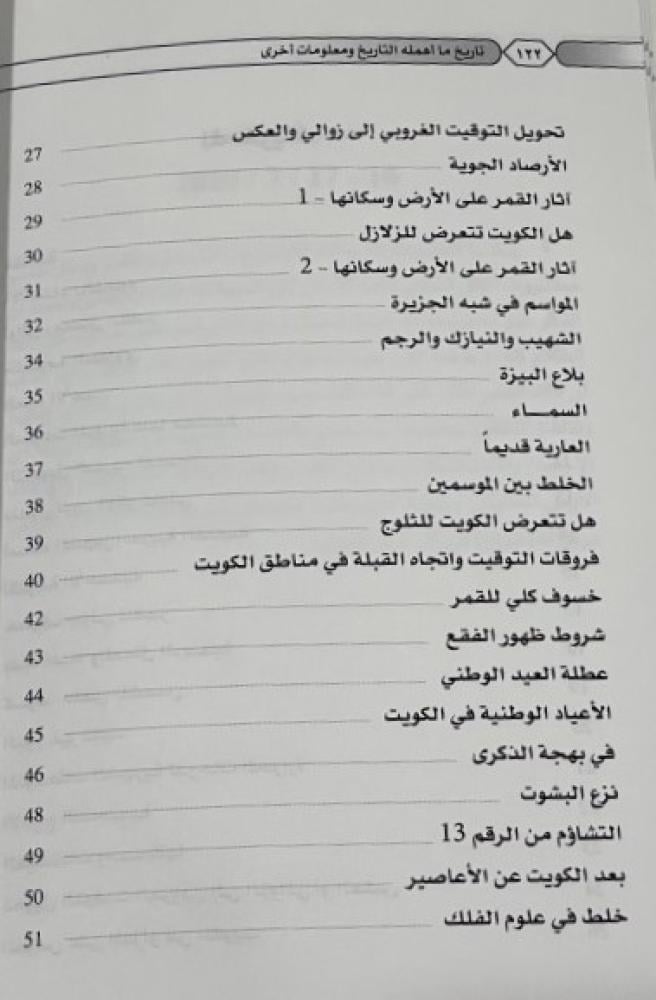 تاريخ ما أهمله التاريخ ومعلومات أخرى ١٢٢
تحويل التوقيت الغروبي إلى زوالي والعكس 27
الأرصاد الجوية 28
آثار القمر على الأرض وسكانها - 1 29
هل الكويت تتعرض للزلازل 30
آثار القمر على الأرض وسكانها - 2 31
المواسم في شبه الجزيرة 32
الشهيب والنيازك والرجم 34
بلاع البيزة 35
السمـــاء 36
العارية قديماً 37
الخلط بين الموسمين 38
هل تتعرض الكويت للثلوج 39
فروقات التوقيت واتجاه القبلة في مناطق الكويت 40
خسوف كلي للقمر 42
شروط ظهور الفقع 43
عطلة العيد الوطني 44
الأعياد الوطنية في الكويت 45
في بهجة الذكرى 46
نزع البشوت 48
التشاؤم من الرقم 13 49
بعد الكويت عن الأعاصير 50
خلط في علوم الفلك 51